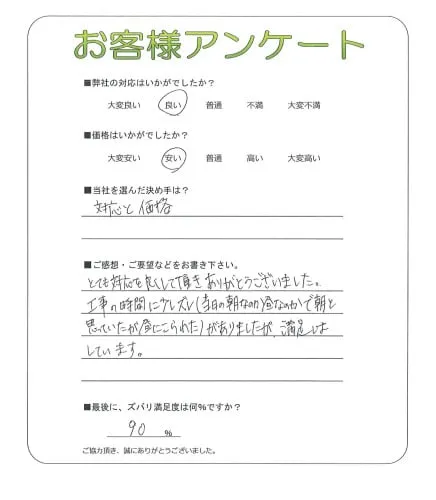 お客様アンケート
■弊社の対応はいかがでしたか?
大変良い 良い 普通 不満 大変不満
■価格はいかがでしたか?
大変安い 安い 普通 高い 大変高い
■当社を選んだ決め手は?
対応と価格
■ご感想・ご要望などをお書き下さい。
とても対応を良くして頂きありがとうございました。
工事の時間に少しズレ(当日の朝なのか昼なのかで朝と
思っていたが昼にこられた)がありましたが、満足は
しています。
■最後に、ズバリ満足度は何%ですか?
90 %
ご協力頂き、誠にありがとうございました。